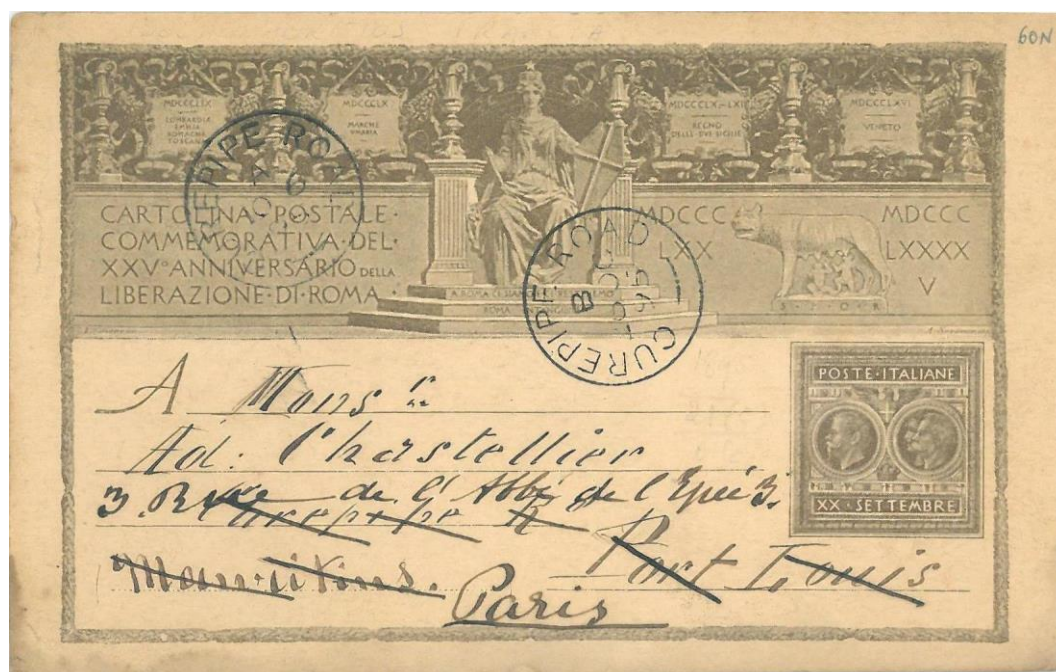 60N
MDCCCLIX
LOMBARDIA
EMILIA
ROMAGNA
TOSCANA
MDCCCLX
MARCHE
UMBRIA
MDCCCLX-LXI
REGNO
DELLE DVE SICILIE
MDCCCLXVI
VENETO
CARTOLINA·POSTALE·
COMMEMORATIVA·DEL·
XXV° ANNIVERSARIO DELLA
LIBERAZIONE·DI·ROMA·
MDCCC
LXX
MDCCC
LXXXX
V
S·P·Q·R
CUREPIPE ROAD
A
CUREPIPE ROAD
B
OC
95
POSTE·ITALIANE
XX·SETTEMBRE
A Mons r
Ad. Chastellier
3. Rue de l'Abbé de l'Epée 3.
Curepipe R
Port Louis
Mauritius.
Paris